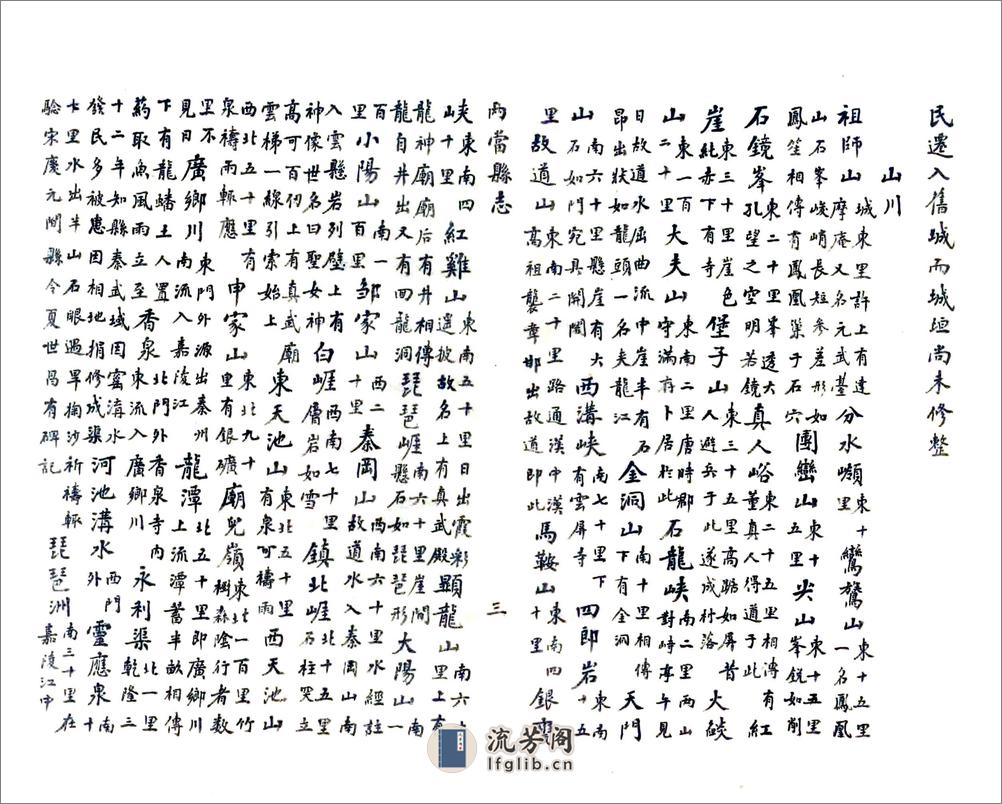 民遷入舊城而城垣尚未修整
山川
祖師山城東里許上有達摩庵又名元武臺分水嶺東十里鸞鷟山東十五里一名鳳凰
山石峯嵯峭長短參差形如鳳笙相傳有鳳凰巢于石穴團巒山東十五里尖山東十五里峯銳如削
石鏡峯東二十里峯透大孔望之空明若鏡真人峪東二十五里相傳有董真人得道于此紅
崖東三十里色純赤下有寺堡子山東三十五里高踞如屏昔人避兵于此遂成村落大燄
山東一百二十里大夫山東南二里唐時郡守滿府卜居於此石龍峽南二里兩山對峙亭午見
日故道水屈曲流中崖半有石昂出狀如龍頭一名夾龍江金洞山南十里相傳下有金洞天門
山南六十里懸崖有大石如門宛具開闔西溝峽南七十里下有雲屏寺四郎岩東南十五
里故道山東南二十里路通漢中漢高祖襲章邯出故道即此馬鞍山東南四十里銀
兩當縣志 三
峽東南四十里紅雞山東南五十里日出霞彩遙披故名上有真武殿顯龍山南六十里上有
龍神廟廟后有井相傳龍自井出又有回龍洞琵琶崕南六十里崖間懸石如琵琶形大陽山南一
百里小陽山南一百里邹家山西二十里秦岡山西南六十里水經註故道水入秦岡山南
入雲懸岩列壁上有神像世名曰聖女神白崕西南七十里膚岩如雪鎮北崕北十五里石柱突立
高可百仞上有真武廟雲梯一線引索始上東天池山東北五十里有泉可禱雨西天池山
西北五十里有泉禱雨輒應申家山東北九十里有銀礦廟兒嶺東北一百里竹樹森陰行者數
里不見日廣鄉川東門外源出秦州南流入嘉陵江龍潭北五十里即廣鄉川上流潭蓄半畝相傳
下有龍蟠土人置药取魚風雨立至香泉北門外香泉寺內東流入廣鄉川永利渠北一里乾隆三
十二年知縣秦武域因窖溝水發民多被患因相地捐修成渠河池溝水西門外靈應泉南十
七里水出半山石眼遇旱掏沙祈禱輒驗宋慶元間縣令夏世昌有碑記琵琶洲南三十里在嘉陵江中
流芳阁
lfglib.cn